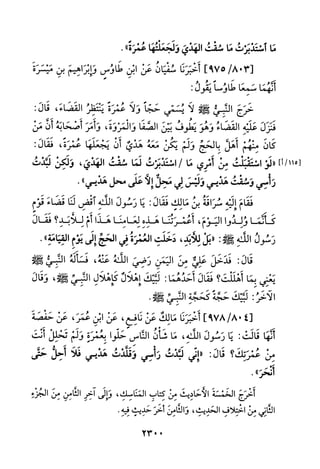 مَا ٱسْتَدْبَرْتُ مَا سُقْتُ الهَدْيَ وَلَجَعَلْتُهَا عُمْرَةً».
[٩٧٥/٨٠٣] أَخْبَرَنَا سُفْيَانُ عَنْ ابْنِ طَاوُسٍ وَإِبْرَاهِيمَ بنِ مَيْسَرَةَ
أَنَّهُمَا سَمِعَا طَاوُساً يَقُولُ:
خَرَجَ النَّبِيُّ ﷺ لاَ يُسَمِّي حَجّاً وَلاَ عُمْرَةً يَنْتَظِرُ القَضَاءَ، قَالَ:
فَنَزَلَ عَلَيْهِ القَضَاءُ وَهُوَ يَطُوفُ بَيْنَ الصَّفَا وَالمَرْوَةَ، وَأَمَرَ أَصْحَابَهُ أَنَّ مَنْ
كَانَ مِنْهُمْ أَهَلَّ بِالحَجِّ وَلَمْ يَكُنْ مَعَهُ هَدْيٌ أَنْ يَجْعَلَهَا عُمْرَةً، فَقَالَ:
[١/١١٥] «لَوْ اسْتَقْبَلْتُ مِنْ أَمْرِي مَا / اسْتَدْبَرْتُ لَمَا سُقْتُ الهَدْيَ، وَلَكِنْ لَبَّدْتُ
رَأْسِي وَسُقْتُ هَدْيِي وَلَيْسَ لِي مَحِلٌّ إِلاَّ عَلَى محل هَدْيِي».
فَقَامَ إِلَيْهِ سُرَاقَةُ بنُ مَالِكٍ فَقَالَ: يَا رَسُولَ اللهِ أقْضِ لَنَا قَضَاءَ قَوْمٍ
كَأَنَّمَا وُلِدُوا اليَوْمَ، أَعُمْرَتُنَا هَذِهِ لِعَامِنَا هَذَا أَمْ لِلأَبَدِ؟ فَقَالَ
رَسُولُ اللهِ ﷺ: «بَلْ لِلأَبَدِ، دَخَلَتِ العُمْرَةُ فِي الحَجِّ إِلَى يَوْمِ القِيَامَةِ».
قَالَ: فَدَخَلَ عَلِيٌّ مِنَ اليَمَنِ رَضِيَ اللهُ عَنْهُ، فَسَأَلَهُ النَّبِيُّ ﷺ
يَعْنِي بِمَا أَهْلَلْتَ؟ فَقَالَ أَحَدُهُمَا: لَبَّيْكَ إِهْلاَلٌ كَإِهْلاَلِ النَّبِيِّ ﷺ، وَقَالَ
الآخَرُ: لَبَّيْكَ حَجَّةً كَحَجَّةِ النَّبِيِّ ﷺ.
[٩٧٨/٨٠٤] أَخْبَرَنَا مَالِكٌ عَنْ نَافِعٍ، عَنْ ابْنِ عُمَرَ، عَنْ حَفْصَةَ
أَنَّهَا قَالَتْ: يَا رَسُولَ اللهِ، مَا شَأْنُ النَّاسِ حَلُّوا بِعُمْرَةٍ وَلَمْ تَحْلِلْ أَنْتَ
مِنْ عُمْرَتِكَ؟ قَالَ: «إِنِّي لَبَّدْتُ رَأْسِي وَقَلَّدْتُ هَدْيِي فَلاَ أَحِلُّ حَتَّى
أَنْحَرَ».
أَخْرَجَ الخَمْسَةَ الأَحَادِيثَ مِنْ كِتَابِ المَنَاسِكِ، وَإِلَى آخِرِ الثَّامِنِ مِنَ الجُزْءِ
الثَّانِي مِنَ اخْتِلاَفِ الحَدِيثِ، وَالثَّامِنَ آخَرَ حَدِيثٍ فِيهِ.
٢٣٠٠